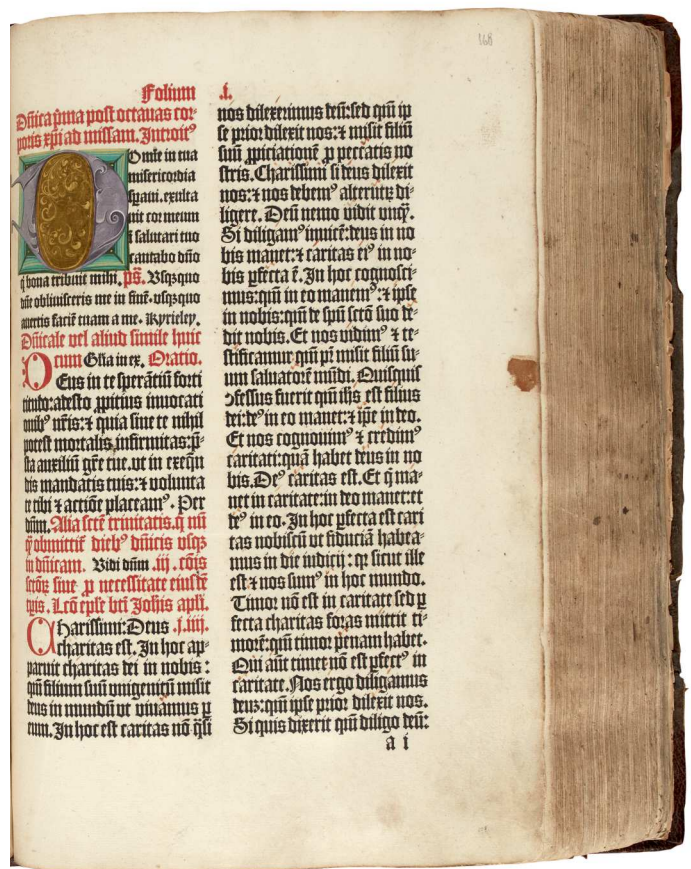 168
Folium .i.
Dñica p̃ma post octauas cor⸗
poris xp̃i ad missam. Introit⁹
Domĩe in tua
misericordia
sperani. exulta
uit cor meum
ĩ salutari tuo
cantabo dño
q̃ bona tribuit mihi. ps̃. Usqzquo
dñe obliuisceris me in finẽ. vsqzquo
auertis faciẽ tuam a me. Kyrieley.
Dñicale vel aliud simile huic
Ocum Glia in ex. Oratio.
Eus in te sperãtiũ forti
titudo: adesto ꝓpitius inuocati
onib⁹ nr̃is: ⁊ quia sine te nihil
potest mortalis infirmitas: p̃⸗
sta auxiliũ gr̃e tue. vt in exeq̃n
dis mandatis tuis: ⁊ volunta
te tibi ⁊ actiõe placeam⁹. Per
dñm. Alia sctẽ trinitatis. q̃ nũ
q̃ obmittit᷑ dieb⁹ dñicis vsqz
in dñicam. Vidi dñm .iij. cõis
sctõꝝ siue ꝓ necessitate eiusdẽ
tꝑis. Lcõ epl̃e bt̃i Joh̃is apl̃i.
Charissimi: Deus .j. iiij.
charitas est. In hoc ap⸗
paruit charitas dei in nobis:
qm̃ filium suũ vnigenitũ misit
deus in mundũ vt viuamus ꝑ
eum. In hoc est caritas nõ q̃si
nos dilexerimus deũ: sed qm̃ ip
se prior dilexit nos: ⁊ misit filiũ
suũ ꝓpiciationẽ ꝓ peccatis no
stris. Charissimi si deus dilexit
nos: ⁊ nos debem⁹ alterutrũ di⸗
ligere. Deũ nemo vidit vnq̃.
Si diligam⁹ inuicẽ: deus in no
bis manet: ⁊ caritas ei⁹ in no⸗
bis ꝑfecta ẽ. In hoc cognosci⸗
mus: qm̃ in eo manem⁹: ⁊ ipse
in nobis: qm̃ de spũ sctõ suo de⸗
dit nobis. Et nos vidim⁹ ⁊ te⸗
stificamur qm̃ pr̃ misit filiũ su⸗
um saluatorẽ mũdi. Quisquis
ꝯfessus fuerit qm̃ ihs est filius
dei: de⁹ in eo manet: ⁊ ip̃e in deo.
Et nos cognouim⁹ ⁊ credim⁹
caritati: quã habet deus in no
bis. De⁹ caritas est. Et q̃ ma⸗
net in caritate: in deo manet: et
de⁹ in eo. In hoc ꝑfecta est cari
tas nobiscũ vt fiduciã habea⸗
mus in die iudicij: qꝛ sicut ille
est ⁊ nos sum⁹ in hoc mundo.
Timor nõ est in caritate sed ꝑ
fecta charitas foras mittit ti⸗
morẽ: qm̃ timor penam habet.
Qui aũt timet nõ est ꝑfect⁹ in
caritate. Nos ergo diligamus
deuz: qm̃ ipse prior dilexit nos.
Si quis dixerit qm̃ diligo deũ:
a i